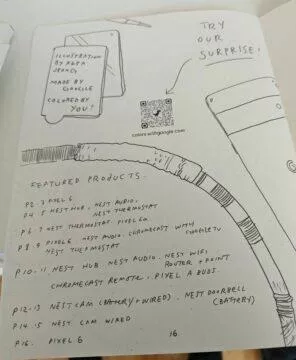 TRY
OUR
SURPRISE!
ILLUSTRATION
BY
MADE BY
GOOGLE
COLORED BY
YOU!
colors.withgoogle.com
FEATURED PRODUCTS
P2-3 PIXEL 6
NEST HUB, NEST AUDIO,
NEST THERMOSTAT
P6-7 NEST THERMOSTAT PIXEL 6A
P8-9 PIXEL 6 NEST AUDIO CHROMECAST WITH
GOOGLE TV
NEST THERMOSTAT
P10-11 NEST HUB NEST AUDIO NEST WIFI
ROUTER + POINT
CHROMECAST REMOTE, PIXEL A BUDS.
P12-13 NEST CAM (BATTERY + WIRED) NEST DOORBELL
(BATTERY)
P14-15 NEST CAM WIRED
P16. PIXEL 6
16